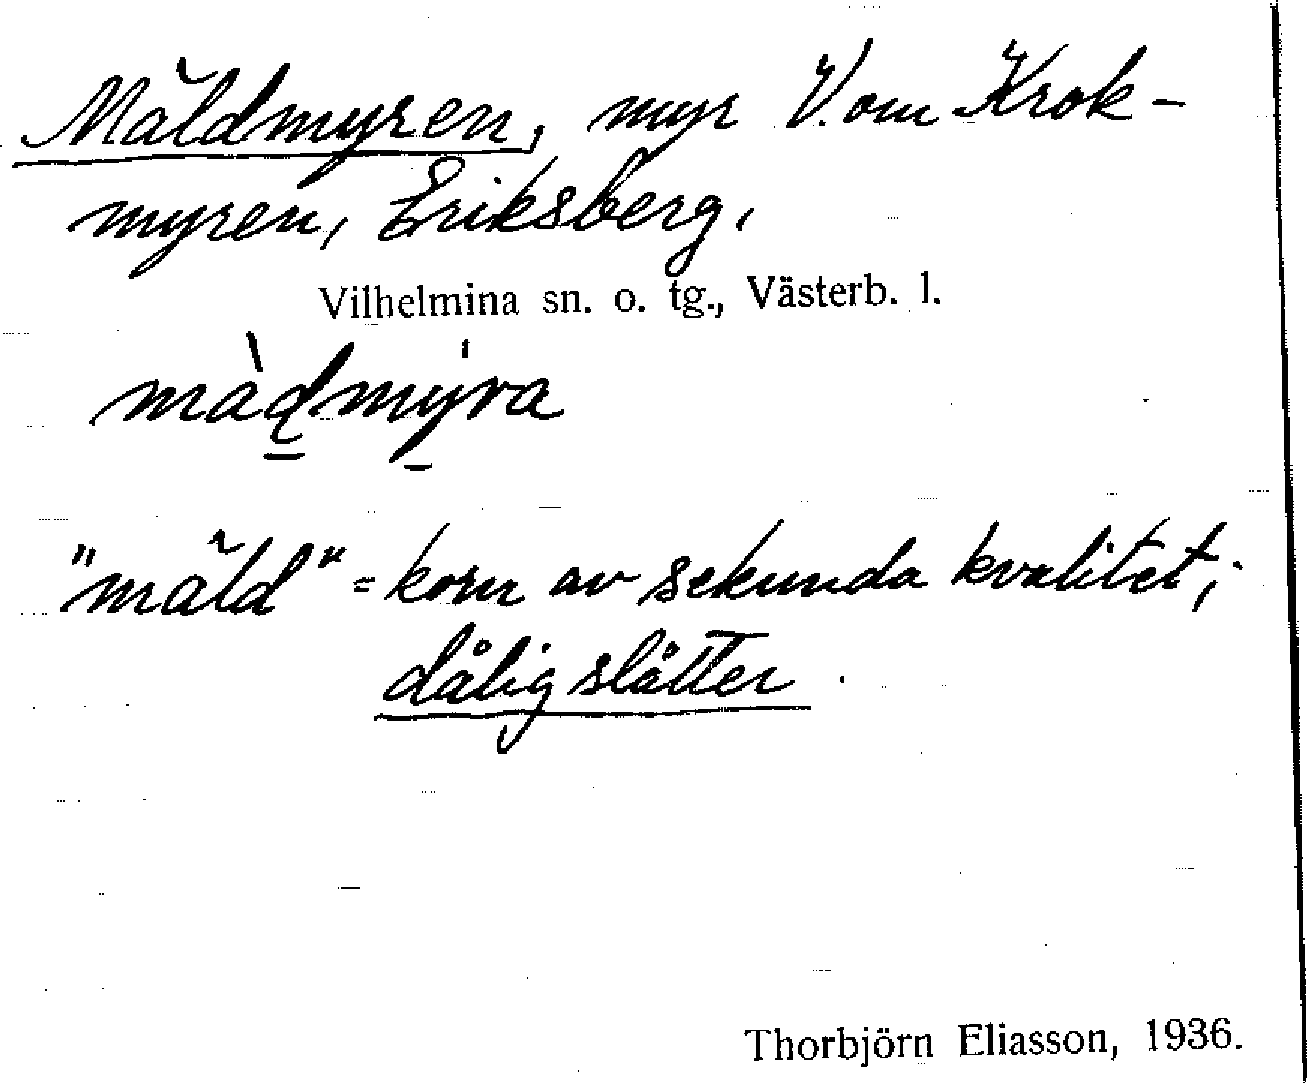 Mäldmyren, myr V. om Krok-
myren, Eriksberg.
Vilhelmina sn. o. tg., Västerb. l.
"mäld" = korn av sekunda kvalitet;
dålig slåtter.
Thorbjörn Eliasson, 1936.